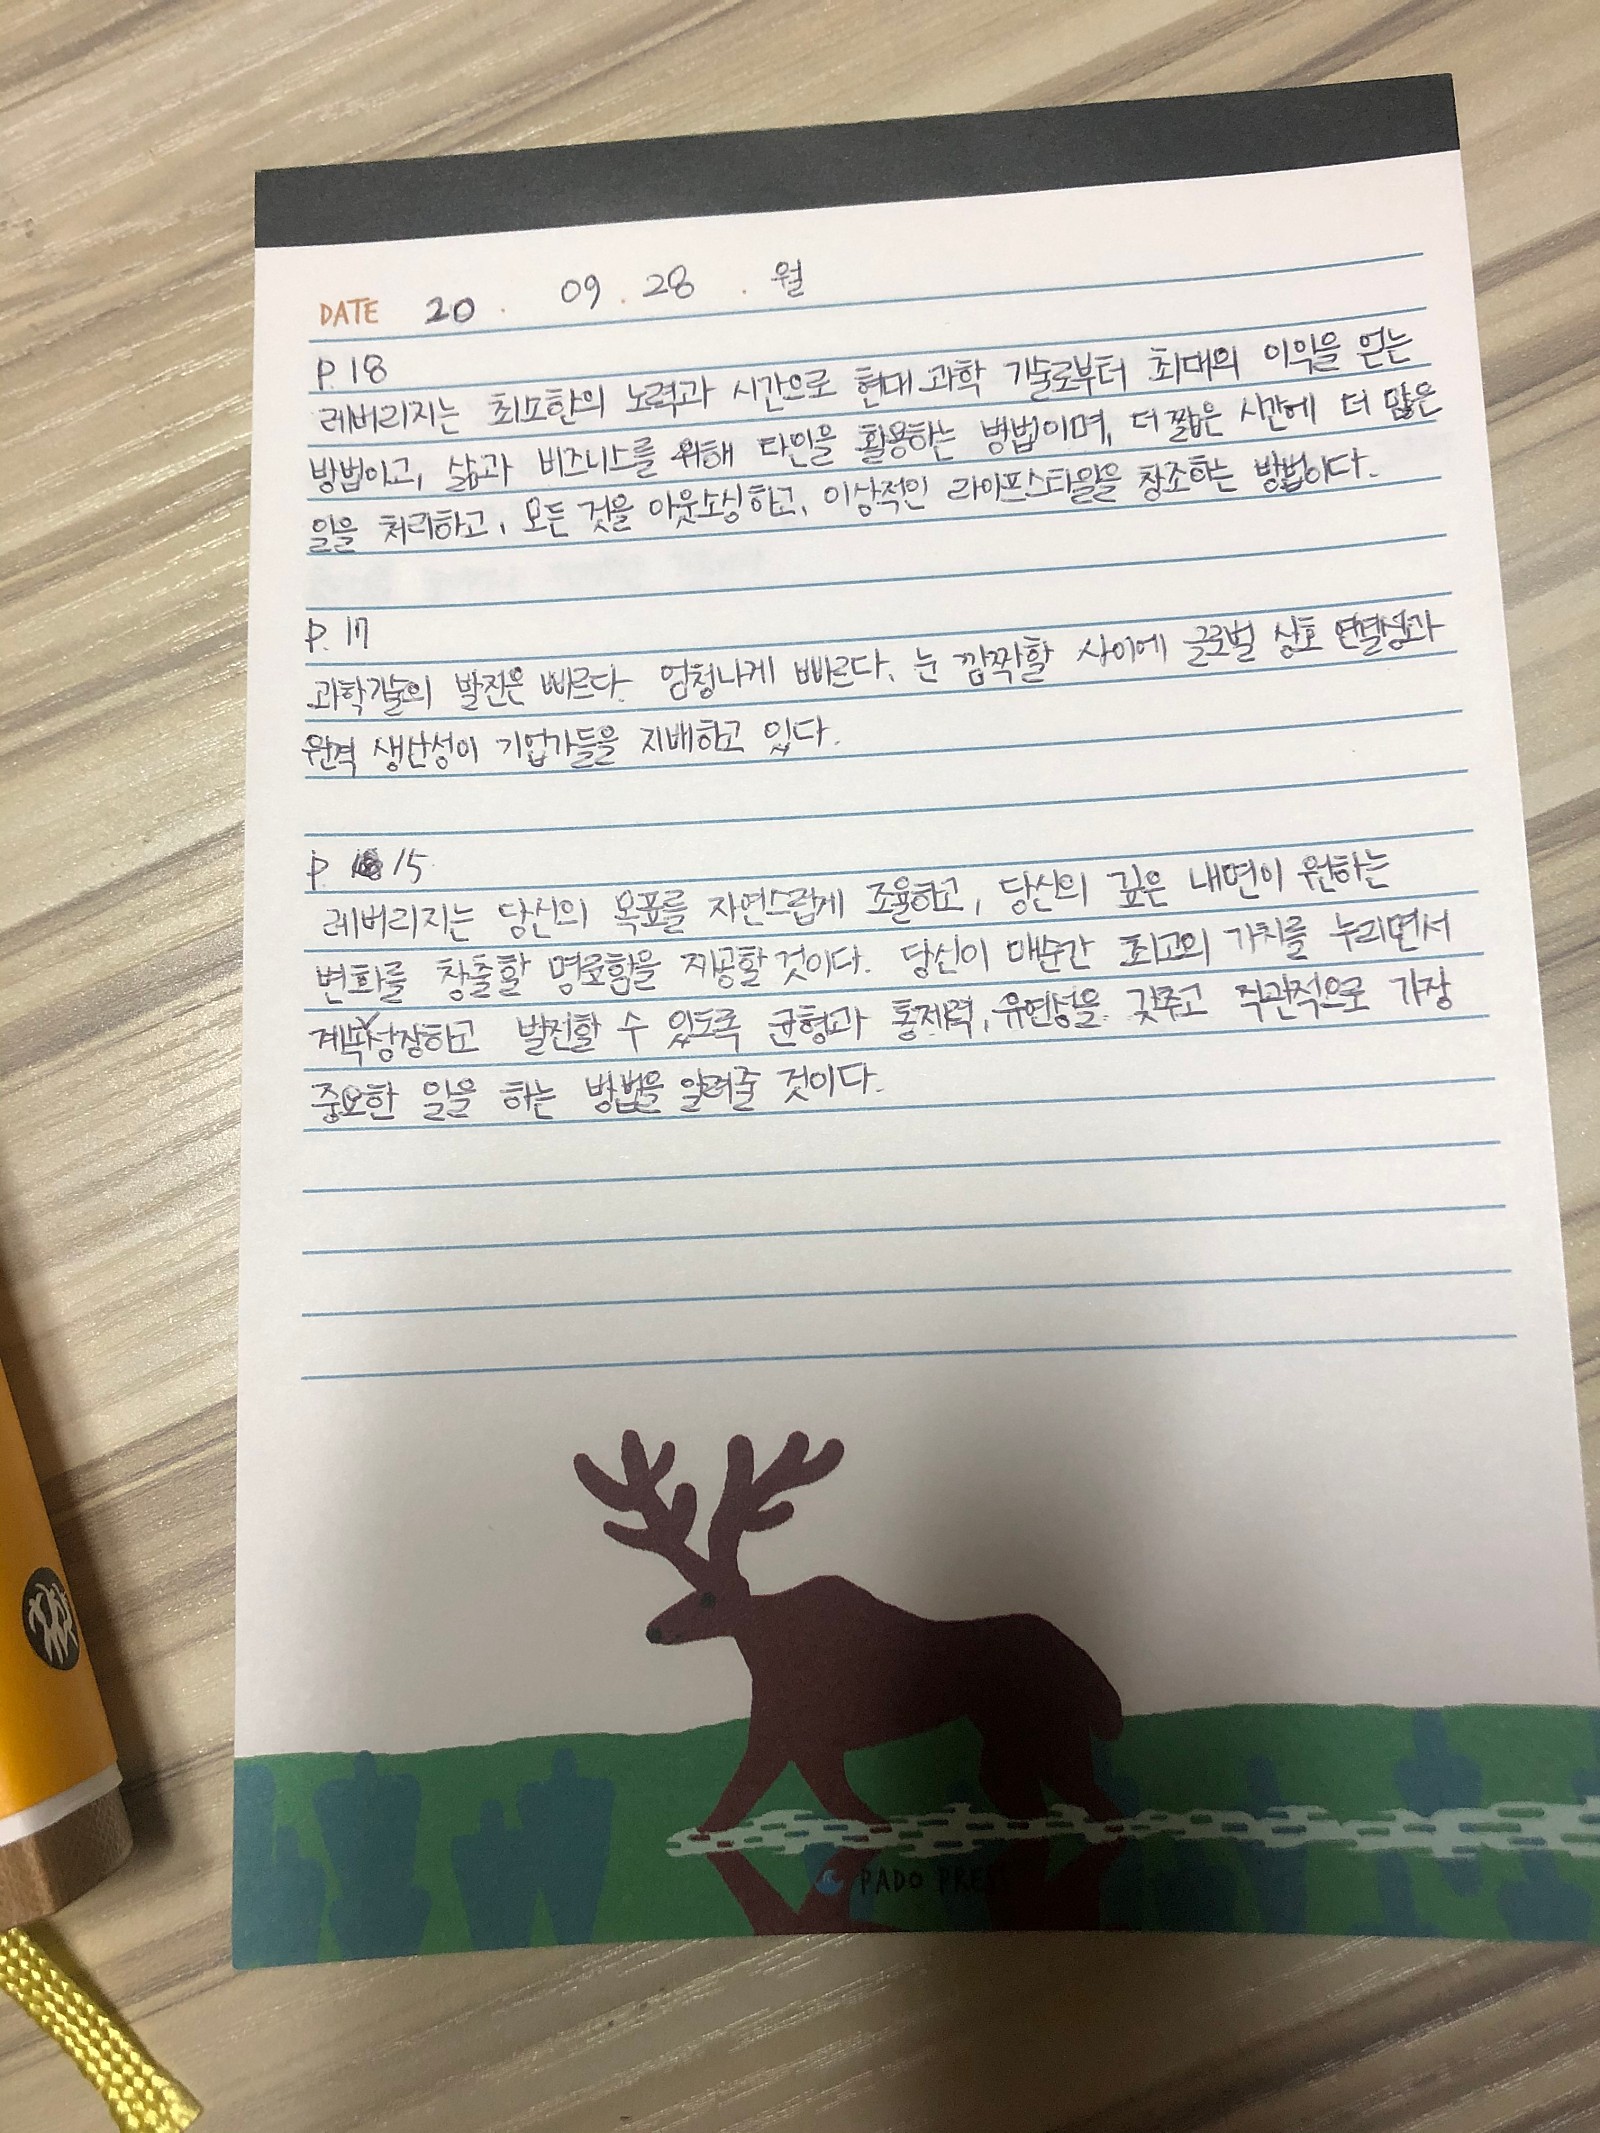 DATE 20 . 09 . 28 . 월
P. 18
레버리지는 최소한의 노력과 시간으로 현대 과학 기술로부터 최대의 이익을 얻는
방법이고, 삶과 비즈니스를 위해 타인을 활용하는 방법이며, 더 짧은 시간에 더 많은
일을 처리하고, 모든 것을 아웃소싱하고, 이상적인 라이프스타일을 창조하는 방법이다.
P. 17
과학기술의 발전은 빠르다. 엄청나게 빠르다. 눈 깜짝할 사이에 글로벌 상호 연결성과
원격 생산성이 기업가들을 지배하고 있다.
P. 15
레버리지는 당신의 목표를 자연스럽게 조율하고, 당신의 깊은 내면이 원하는
변화를 창출할 명료함을 제공할 것이다. 당신이 매순간 최고의 가치를 누리면서
계속 성장하고 발전할 수 있도록 균형과 통제력, 유연성을 갖추고 직관적으로 가장
중요한 일을 하는 방법을 알려줄 것이다.
PADO PRES